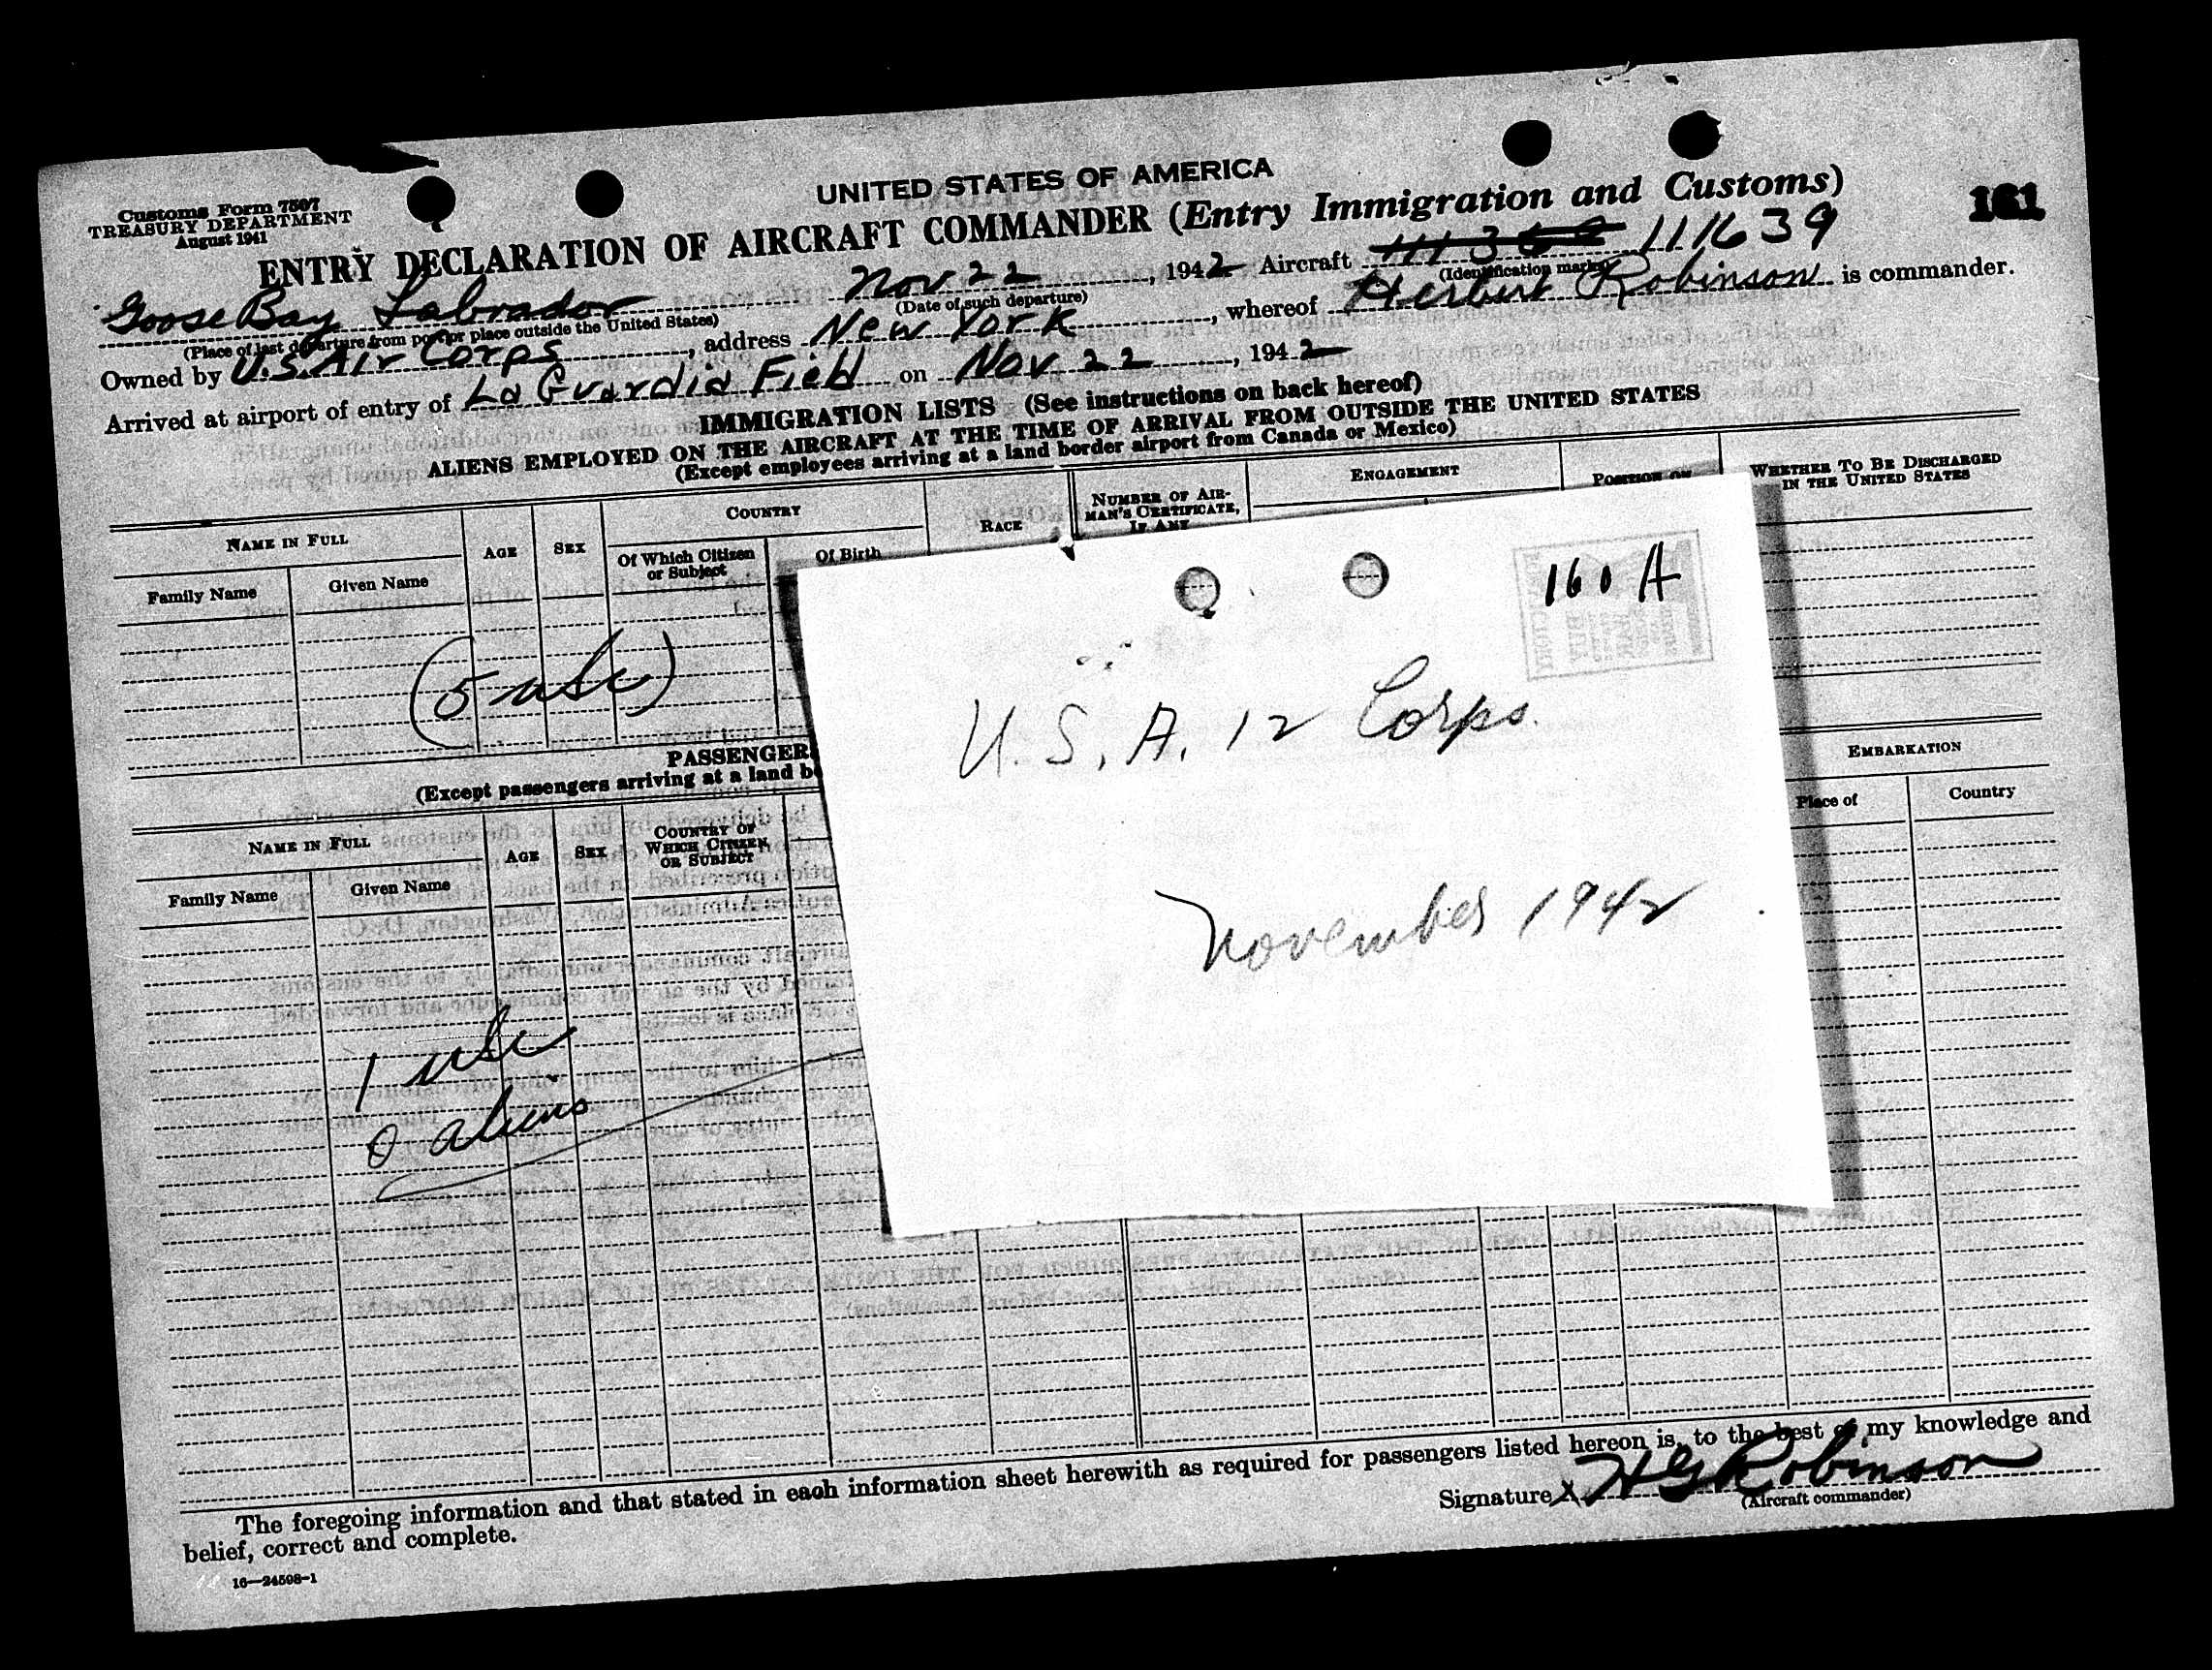 UNITED STATES OF AMERICA
Customs Form 7507
TREASURY DEPARTMENT
August 1941
161
ENTRY DECLARATION OF AIRCRAFT COMMANDER (Entry Immigration and Customs)
Goose Bay Labrador Nov 22, 1942 Aircraft 111639
(Place of last departure from port or place outside the United States) (Date of such departure) (Identification marks)
Owned by U.S. Air Corps, address New York, whereof Herbert Robinson is commander.
Arrived at airport of entry of La Guardia Field on Nov 22, 1942
IMMIGRATION LISTS (See instructions on back hereof)
ALIENS EMPLOYED ON THE AIRCRAFT AT THE TIME OF ARRIVAL FROM OUTSIDE THE UNITED STATES
(Except employees arriving at a land border airport from Canada or Mexico)
NAME IN FULL AGE SEX COUNTRY RACE NUMBER OF AIRMAN'S CERTIFICATE, IF ANY ENGAGEMENT POSITION ON WHETHER TO BE DISCHARGED IN THE UNITED STATES
Family Name Given Name Of Which Citizen or Subject Of Birth
(5 usc)
160 A
U. S. A. 12 Corps.
November 1942
PASSENGER
(Except passengers arriving at a land b
NAME IN FULL AGE SEX COUNTRY OF WHICH CITIZEN OR SUBJECT EMBARKATION
Family Name Given Name Place of Country
1 usc
0 aliens
The foregoing information and that stated in each information sheet herewith as required for passengers listed hereon is, to the best of my knowledge and
belief, correct and complete.
Signature X H G Robinson
(Aircraft commander)
16—24598-1